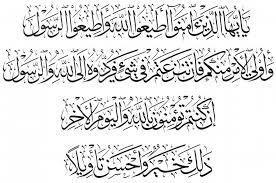 يَا أَيُّهَا الَّذِينَ آمَنُوا أَطِيعُوا اللَّهَ وَأَطِيعُوا الرَّسُولَ
وَأُولِي الْأَمْرِ مِنْكُمْ فَإِنْ تَنَازَعْتُمْ فِي شَيْءٍ فَرُدُّوهُ إِلَى اللَّهِ وَالرَّسُولِ
إِنْ كُنْتُمْ تُؤْمِنُونَ بِاللَّهِ وَالْيَوْمِ الْآخِرِ
ذَلِكَ خَيْرٌ وَأَحْسَنُ تَأْوِيلًا